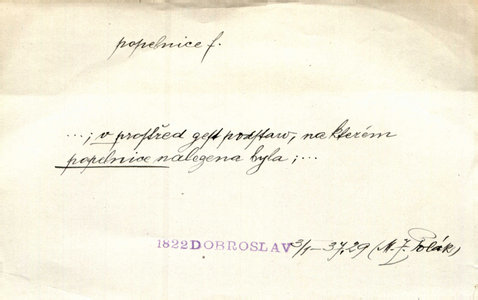 popelnice f.
...; v prostřed gest podstaw, na kterém
popelnice nalezena byla; ...
1822 DOBROSLAV 3/1-37,29 (M. J. Polák)